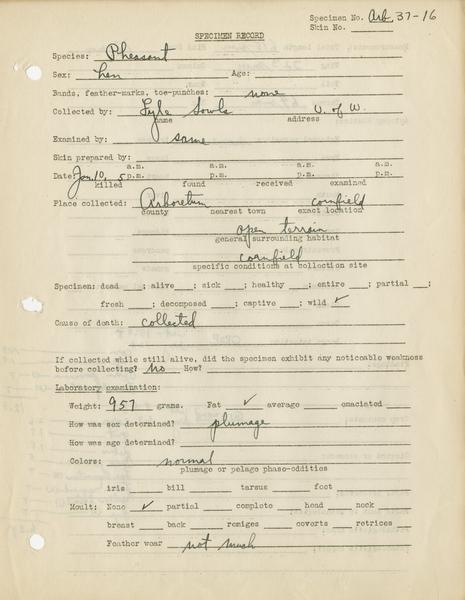 Specimen No. Arb 37-16
Skin No.
SPECIMEN RECORD
Species: Pheasant
Sex: hen Age:
Bands, feather-marks, toe-punches: none
Collected by: Lyle Sowls U. of W.
name address
Examined by: same
Skin prepared by:
a.m. a.m. a.m. a.m.
Date: Jan. 10, 5 p.m. p.m. p.m. p.m.
killed found received examined
Place collected: Arboretum cornfield
county nearest town exact location
open terrain
general surrounding habitat
cornfield
specific conditions at collection site
Specimen: dead ; alive ; sick ; healthy ; entire ; partial ;
fresh ; decomposed ; captive ; wild ✓
Cause of death: collected
If collected while still alive, did the specimen exhibit any noticable weakness
before collecting? No How?
Laboratory examination:
Weight: 957 grams. Fat ✓ average emaciated
How was sex determined? plumage
How was age determined?
Colors: normal
plumage or pelage phase-oddities
iris bill tarsus foot
Moult: None ✓ partial complete head neck
breast back remiges coverts retrices
Feather wear not much